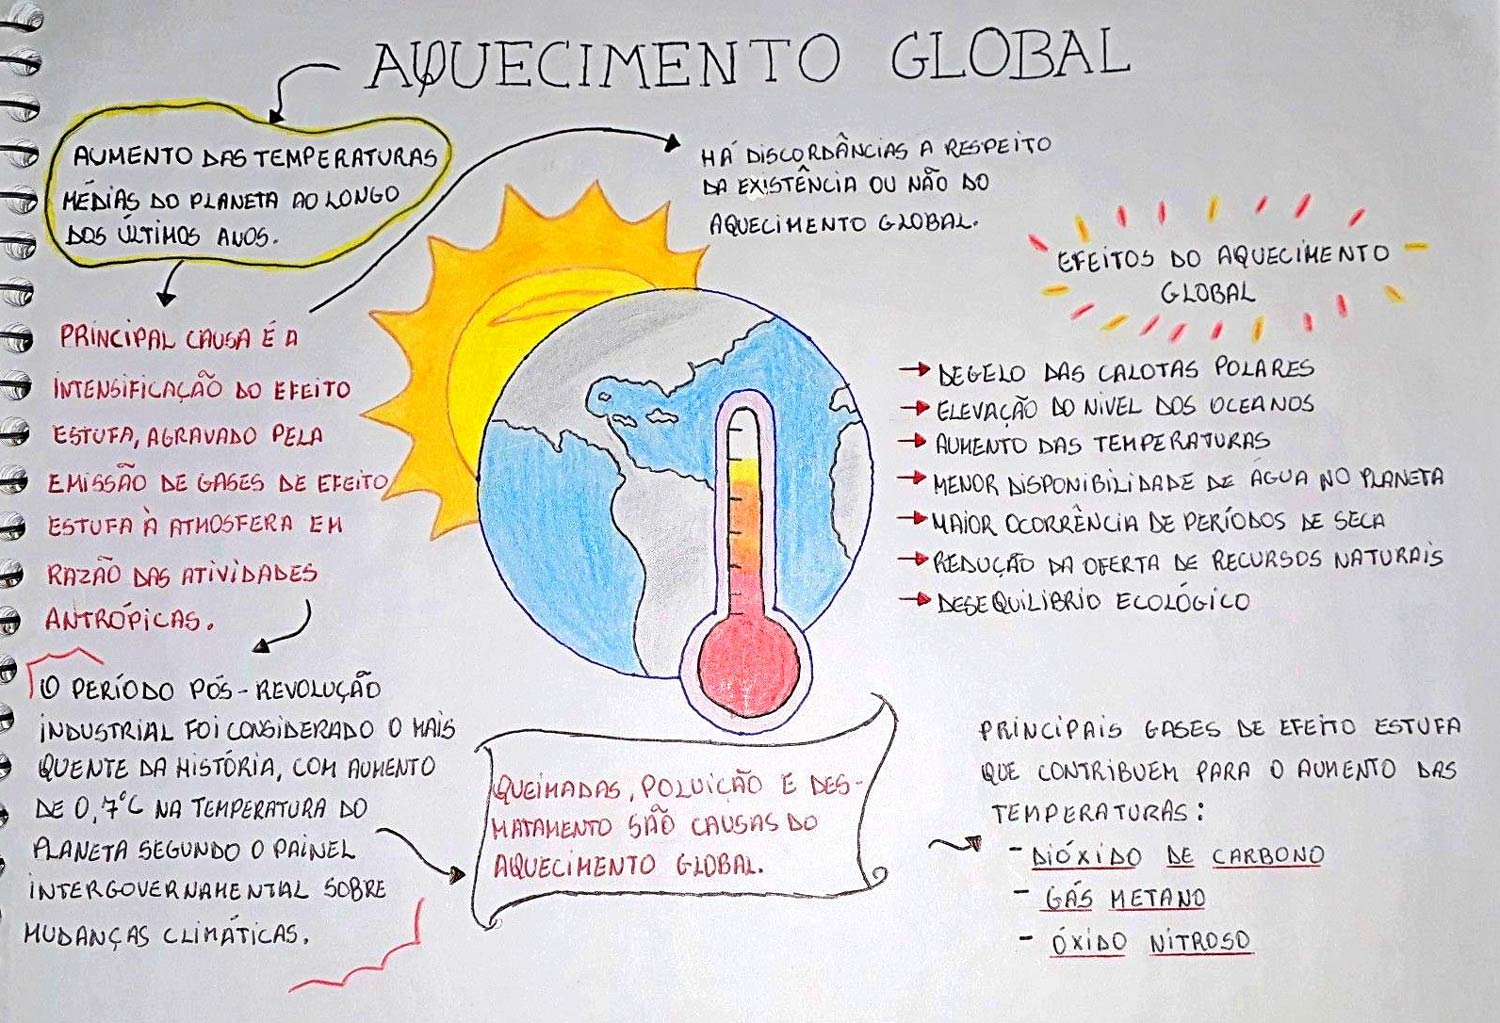 AQUECIMENTO GLOBAL
AUMENTO DAS TEMPERATURAS
MÉDIAS DO PLANETA AO LONGO
DOS ÚLTIMOS ANOS.
HÁ DISCORDÂNCIAS A RESPEITO
DA EXISTÊNCIA OU NÃO DO
AQUECIMENTO GLOBAL.
PRINCIPAL CAUSA É A
INTENSIFICAÇÃO DO EFEITO
ESTUFA, AGRAVADO PELA
EMISSÃO DE GASES DE EFEITO
ESTUFA À ATMOSFERA EM
RAZÃO DAS ATIVIDADES
ANTRÓPICAS.
EFEITOS DO AQUECIMENTO
GLOBAL
DEGELO DAS CALOTAS POLARES
ELEVAÇÃO DO NIVEL DOS OCEANOS
AUMENTO DAS TEMPERATURAS
MENOR DISPONIBILIDADE DE ÁGUA NO PLANETA
MAIOR OCORRÊNCIA DE PERÍODOS DE SECA
REDUÇÃO DA OFERTA DE RECURSOS NATURAIS
DESEQUILIBRIO ECOLÓGICO
O PERÍODO PÓS-REVOLUÇÃO
INDUSTRIAL FOI CONSIDERADO O MAIS
QUENTE DA HISTÓRIA, COM AUMENTO
DE 0,7°C NA TEMPERATURA DO
PLANETA SEGUNDO O PAINEL
INTERGOVERNAMENTAL SOBRE
MUDANÇAS CLIMÁTICAS.
QUEIMADAS, POLUIÇÃO E DES-
MATAMENTO SÃO CAUSAS DO
AQUECIMENTO GLOBAL.
PRINCIPAIS GASES DE EFEITO ESTUFA
QUE CONTRIBUEM PARA O AUMENTO DAS
TEMPERATURAS:
- DIÓXIDO DE CARBONO
- GÁS METANO
- ÓXIDO NITROSO